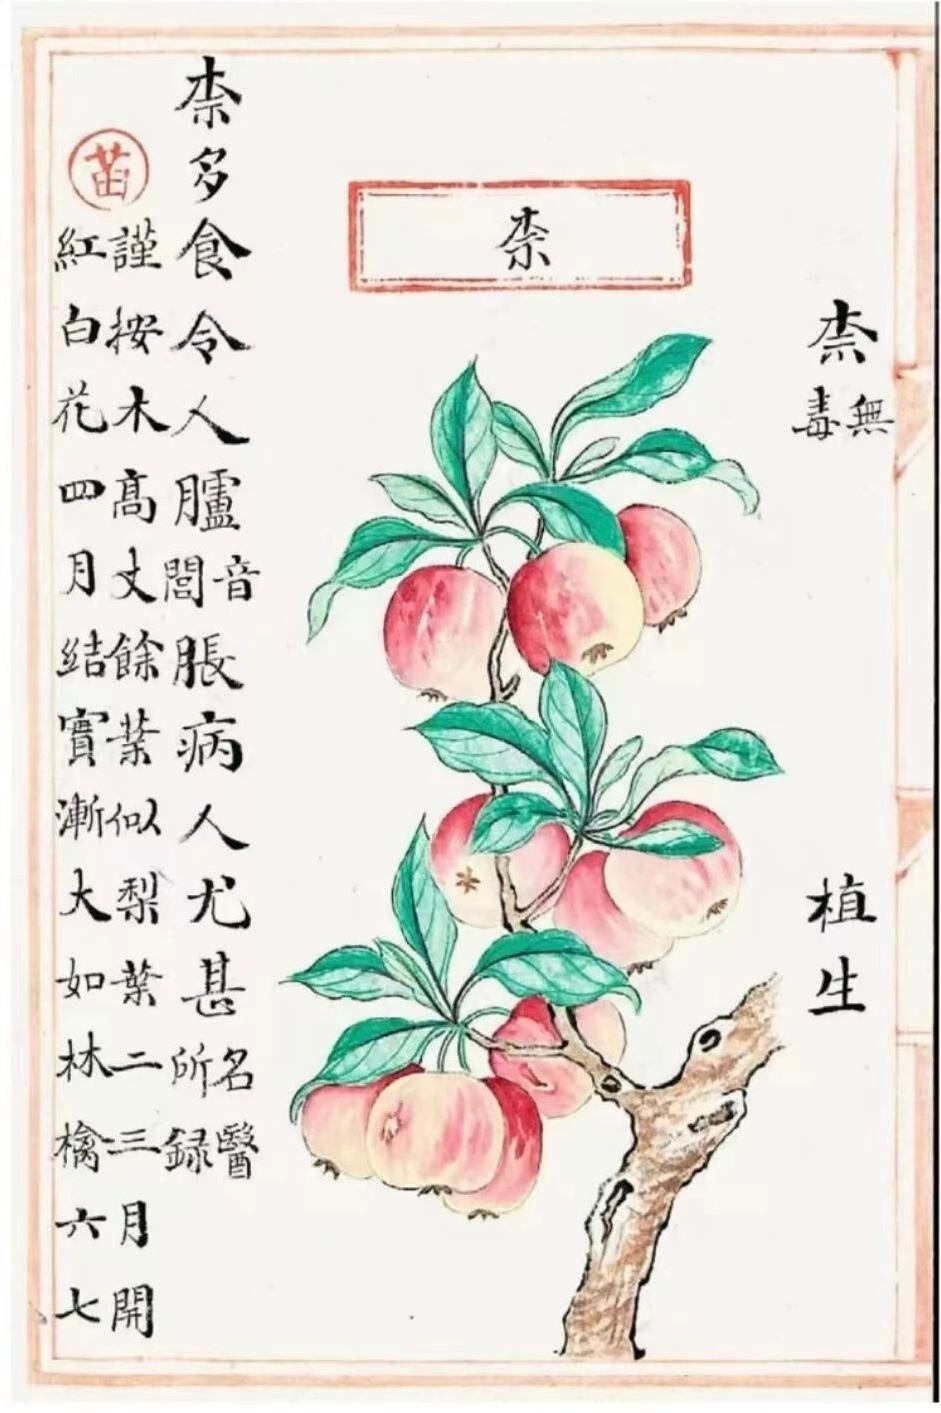 柰無毒
植生
柰
柰多食令人臚音閭脹病人尤甚名醫所録
苗
謹按木高丈餘葉似梨葉二三月開
紅白花四月結實漸大如林檎六七